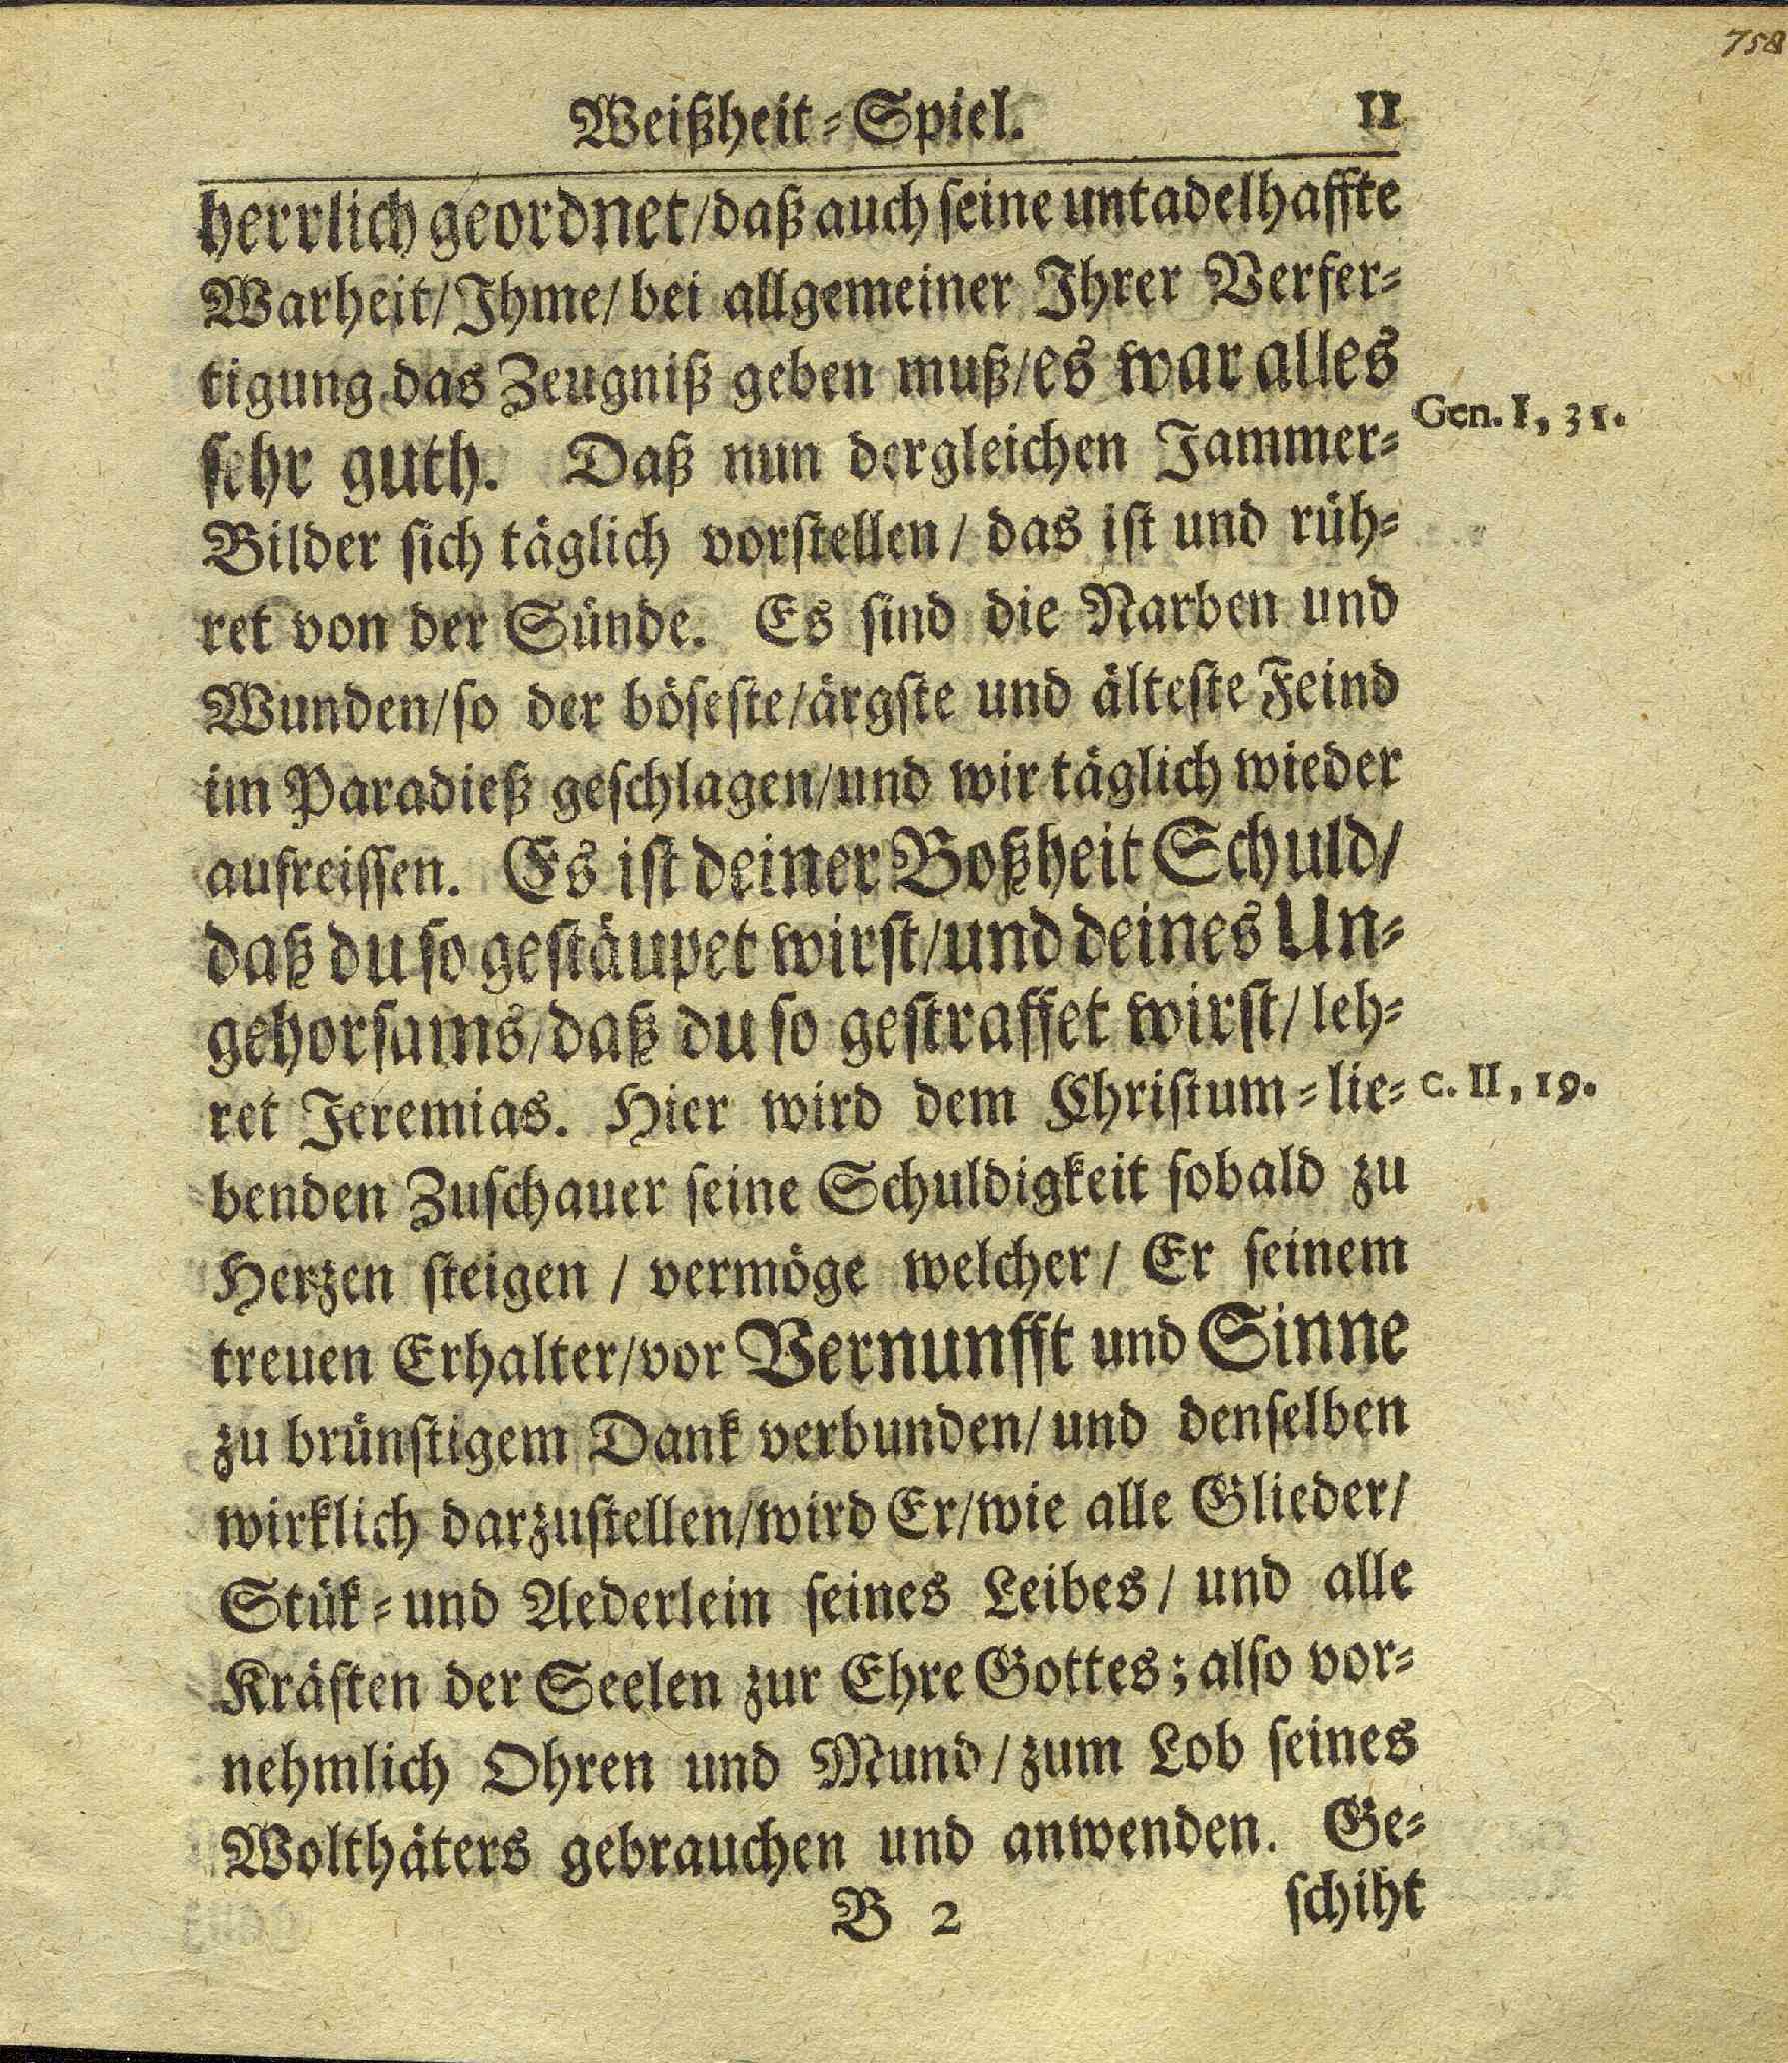 758
Weißheit-Spiel. 11
herrlich geordnet/daß auch ſeine untadelhaffte
Warheit/Ihme/bei allgemeiner Ihrer Verfer-
tigung das Zeugniß geben muß/es war alles
Gen. I, 31.
ſehr guth. Daß nun dergleichen Jammer-
Bilder ſich täglich vorſtellen/ das iſt und rüh-
ret von der Sünde. Es ſind die Narben und
Wunden/ſo der böſeſte/ärgſte und älteſte Feind
im Paradieß geſchlagen/und wir täglich wieder
aufreiſſen. Es iſt deiner Boßheit Schuld/
daß du ſo geſtäupet wirſt/und deines Un-
gehorſams/daß du ſo geſtraffet wirſt/ leh-
ret Jeremias. Hier wird dem Chriſtum-lie-
c. II, 19.
benden Zuſchauer ſeine Schuldigkeit ſobald zu
Herzen ſteigen / vermöge welcher/ Er ſeinem
treuen Erhalter/vor Vernunfft und Sinne
zu brünſtigem Dank verbunden/und denſelben
wirklich darzuſtellen/wird Er/wie alle Glieder/
Stük-und Aederlein ſeines Leibes/ und alle
Kräften der Seelen zur Ehre Gottes; alſo vor-
nehmlich Ohren und Mund/zum Lob ſeines
Wolthäters gebrauchen und anwenden. Ge-
B 2 ſchiht